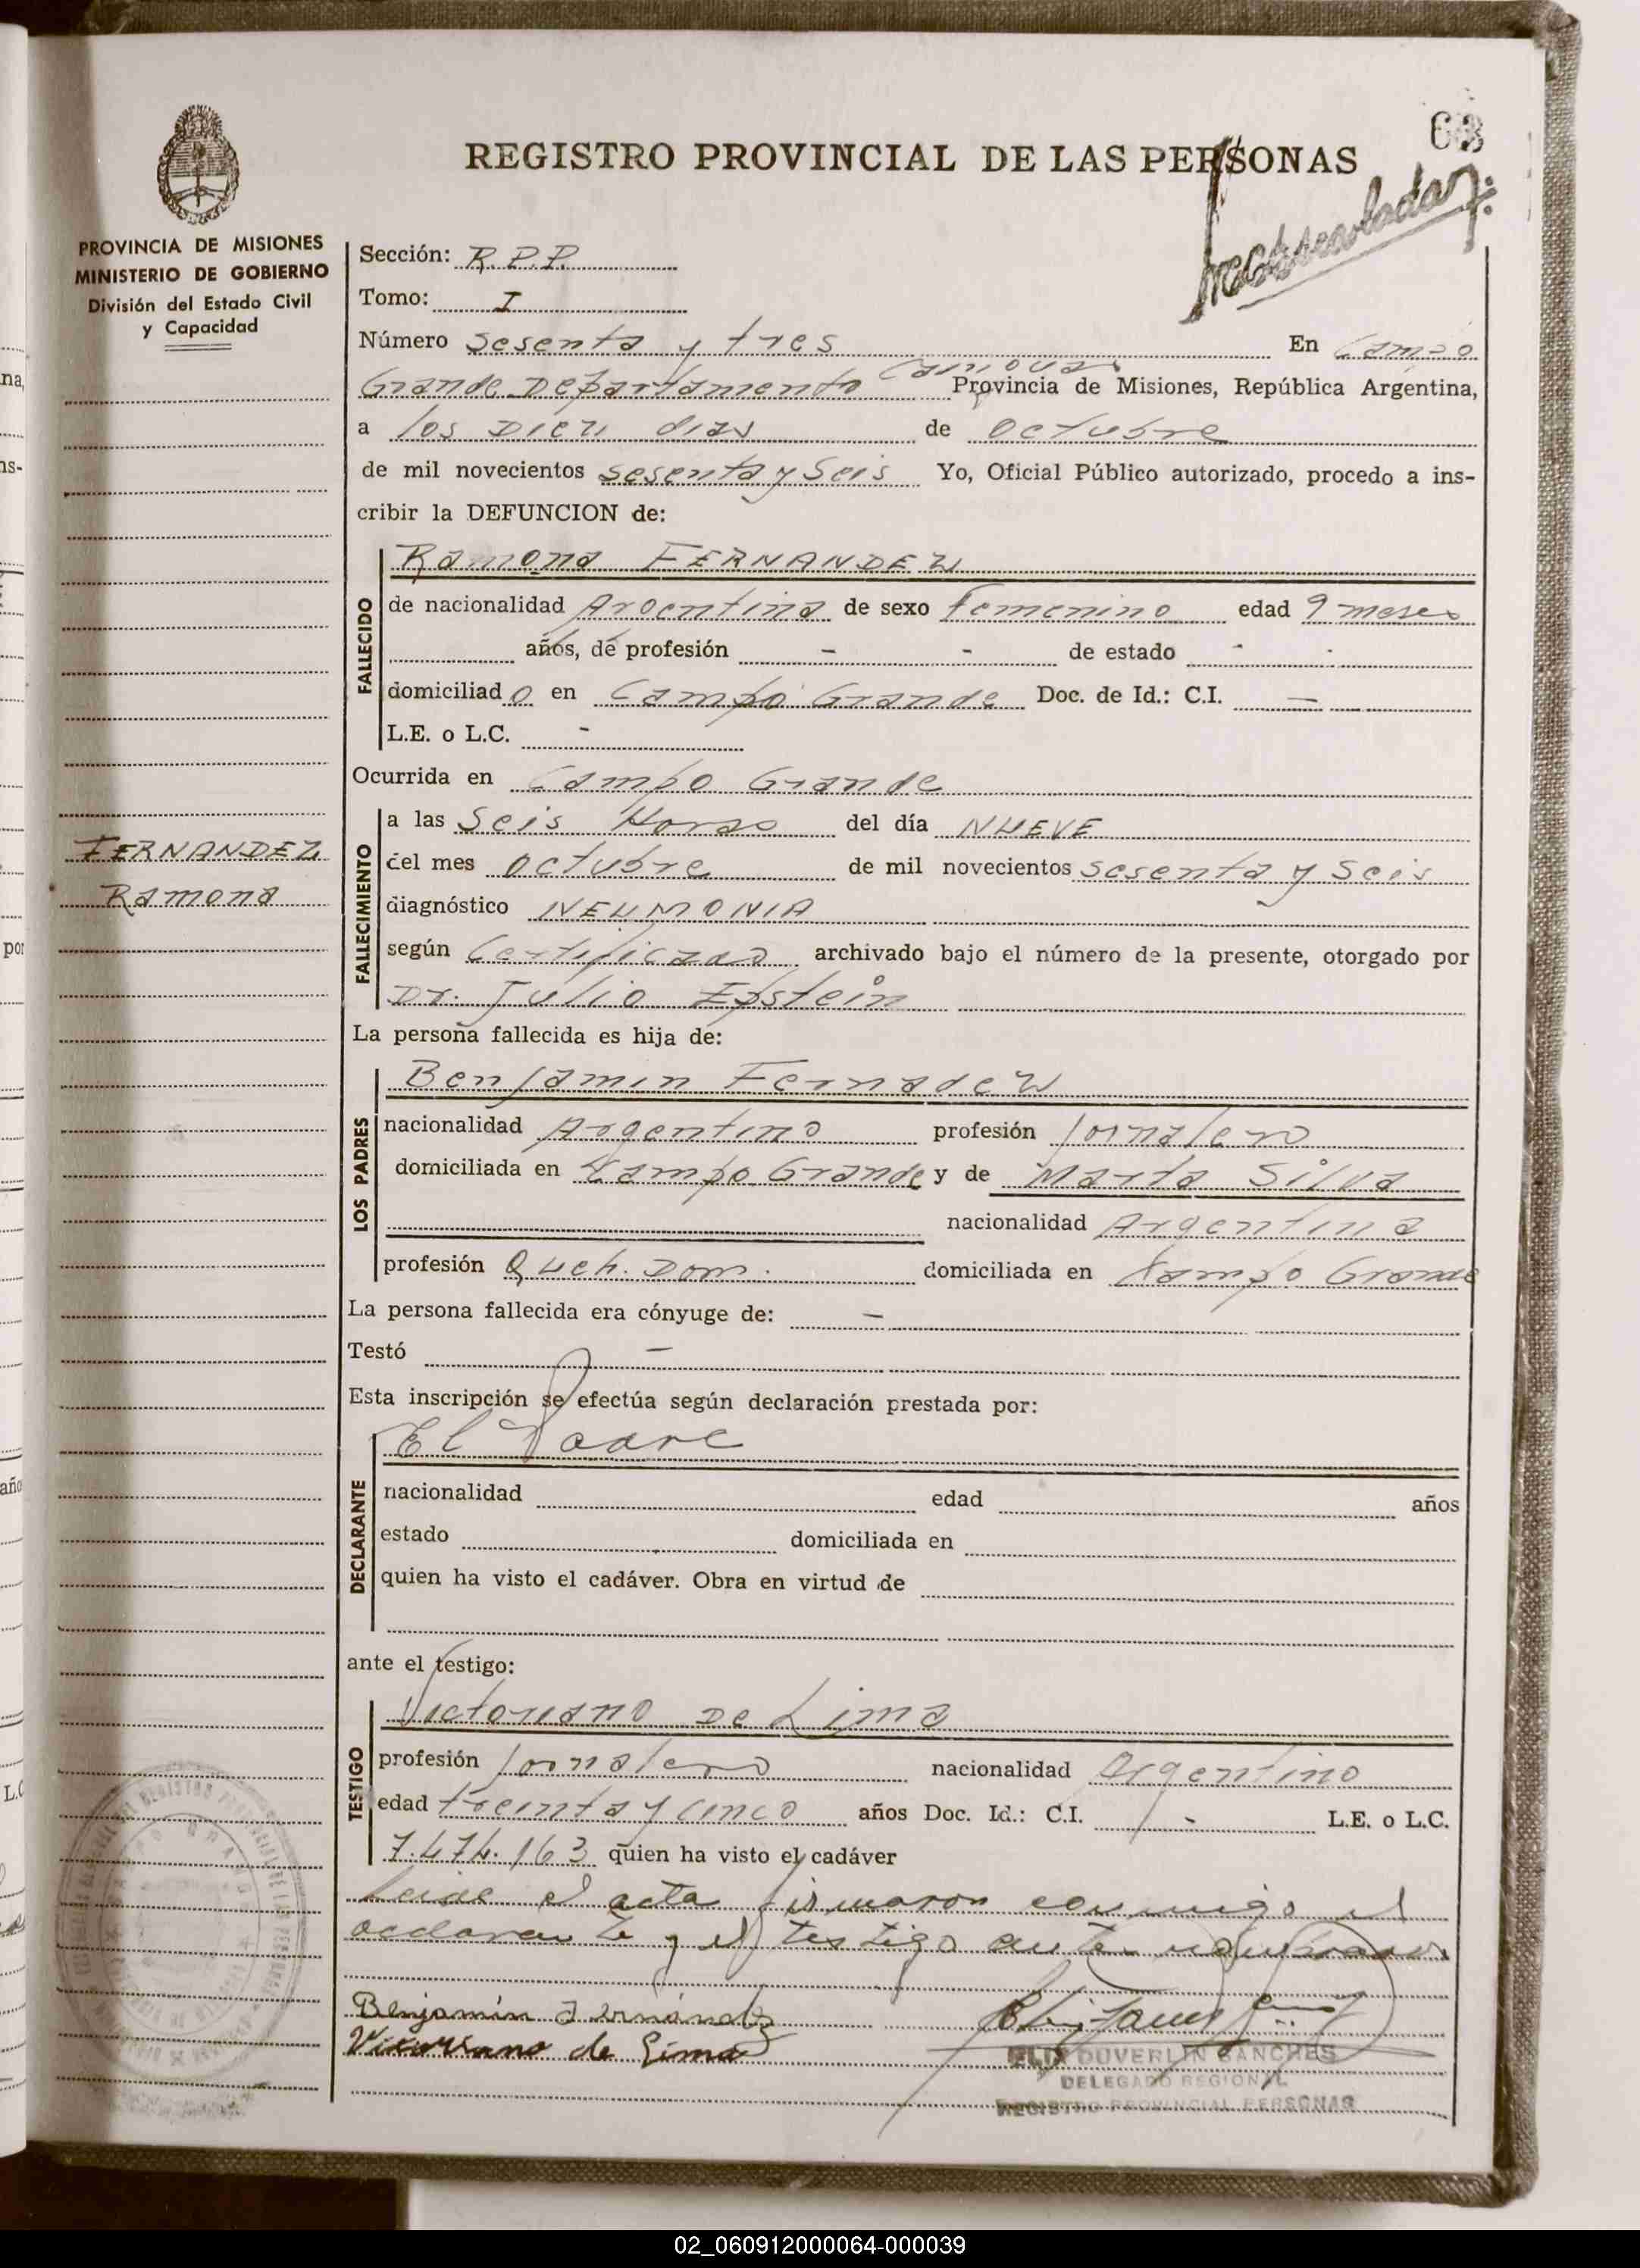 63
REGISTRO PROVINCIAL DE LAS PERSONAS
PROVINCIA DE MISIONES
MINISTERIO DE GOBIERNO
División del Estado Civil
y Capacidad
FERNANDEZ
Ramona
Sección: R.P.P.
Tomo: I
Número Sesenta y tres En Campo
Grande Departamento Cainguas Provincia de Misiones, República Argentina,
a los Diez dias de Octubre
de mil novecientos sesenta y Seis Yo, Oficial Público autorizado, procedo a ins-
cribir la DEFUNCION de:
FALLECIDO
Ramona FERNANDEZ
de nacionalidad Argentina de sexo Femenino edad 9 meses
años, de profesión - - de estado - -
domiciliado en Campo Grande Doc. de Id.: C.I. —
L.E. o L.C. -
Ocurrida en Campo Grande
FALLECIMIENTO
a las Seis Horas del día NUEVE
del mes octubre de mil novecientos sesenta y Seis
diagnóstico NEUMONIA
según Certificado archivado bajo el número de la presente, otorgado por
Dr. Julio Epstein
La persona fallecida es hija de:
LOS PADRES
Benjamin Fernadez
nacionalidad Argentino profesión Jornalero
domiciliada en Campo Grande y de Marta Silva
nacionalidad Argentina
profesión Queh. Dom. domiciliada en Campo Grande
La persona fallecida era cónyuge de: —
Testó —
Esta inscripción se efectúa según declaración prestada por:
DECLARANTE
El Padre
nacionalidad edad años
estado domiciliada en
quien ha visto el cadáver. Obra en virtud de
ante el testigo:
TESTIGO
Victoriano De Lima
profesión Jornalero nacionalidad Argentino
edad treinta y cinco años Doc. Id.: C.I. - L.E. o L.C.
7.474.163 quien ha visto el cadáver
Leida el acta firmaron conmigo el
declarante y el testigo
Benjamín Fernández
Victoriano de Lima
DUVERLIN SANCHES
DELEGADO REGIONAL
REGISTRO PROVINCIAL PERSONAS
02_060912000064-000039